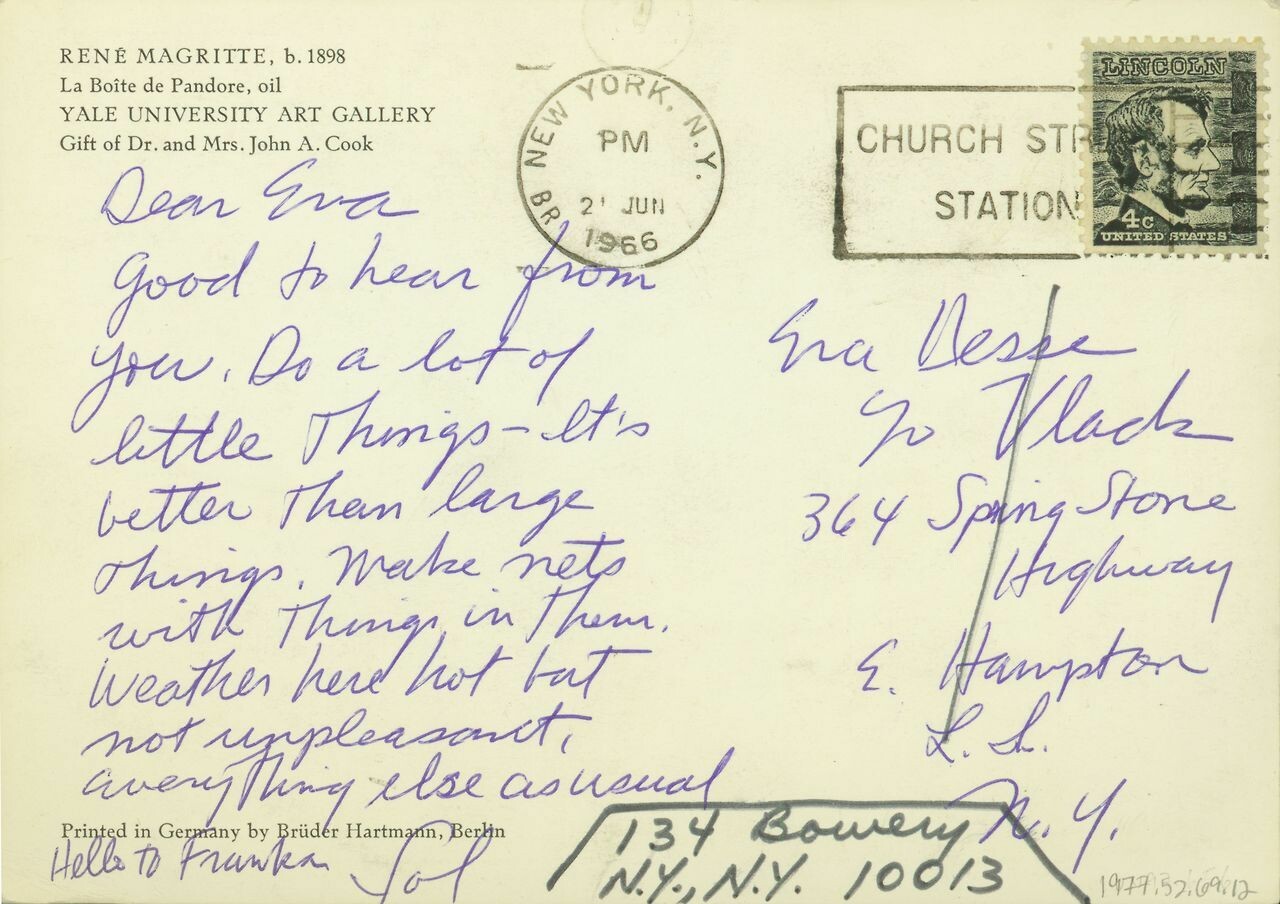 RENÉ MAGRITTE, b. 1898
La Boîte de Pandore, oil
YALE UNIVERSITY ART GALLERY
Gift of Dr. and Mrs. John A. Cook
NEW YORK, N.Y.
PM
21 JUN
1966
BR
CHURCH STR
STATION
LINCOLN
4c
UNITED STATES
Dear Eva
Good to hear from
you. Do a lot of
little things – It's
better than large
things. Make nets
with things in them.
Weather here hot but
not unpleasant,
everything else as usual
Printed in Germany by Brüder Hartmann, Berlin
Hello to
Sol
Eva Hesse
c/o Vlack
364 Spring Stone
Highway
E. Hampton
L. I.
N. Y.
134 Bowery
N.Y., N.Y. 10013
1977.52.69.12